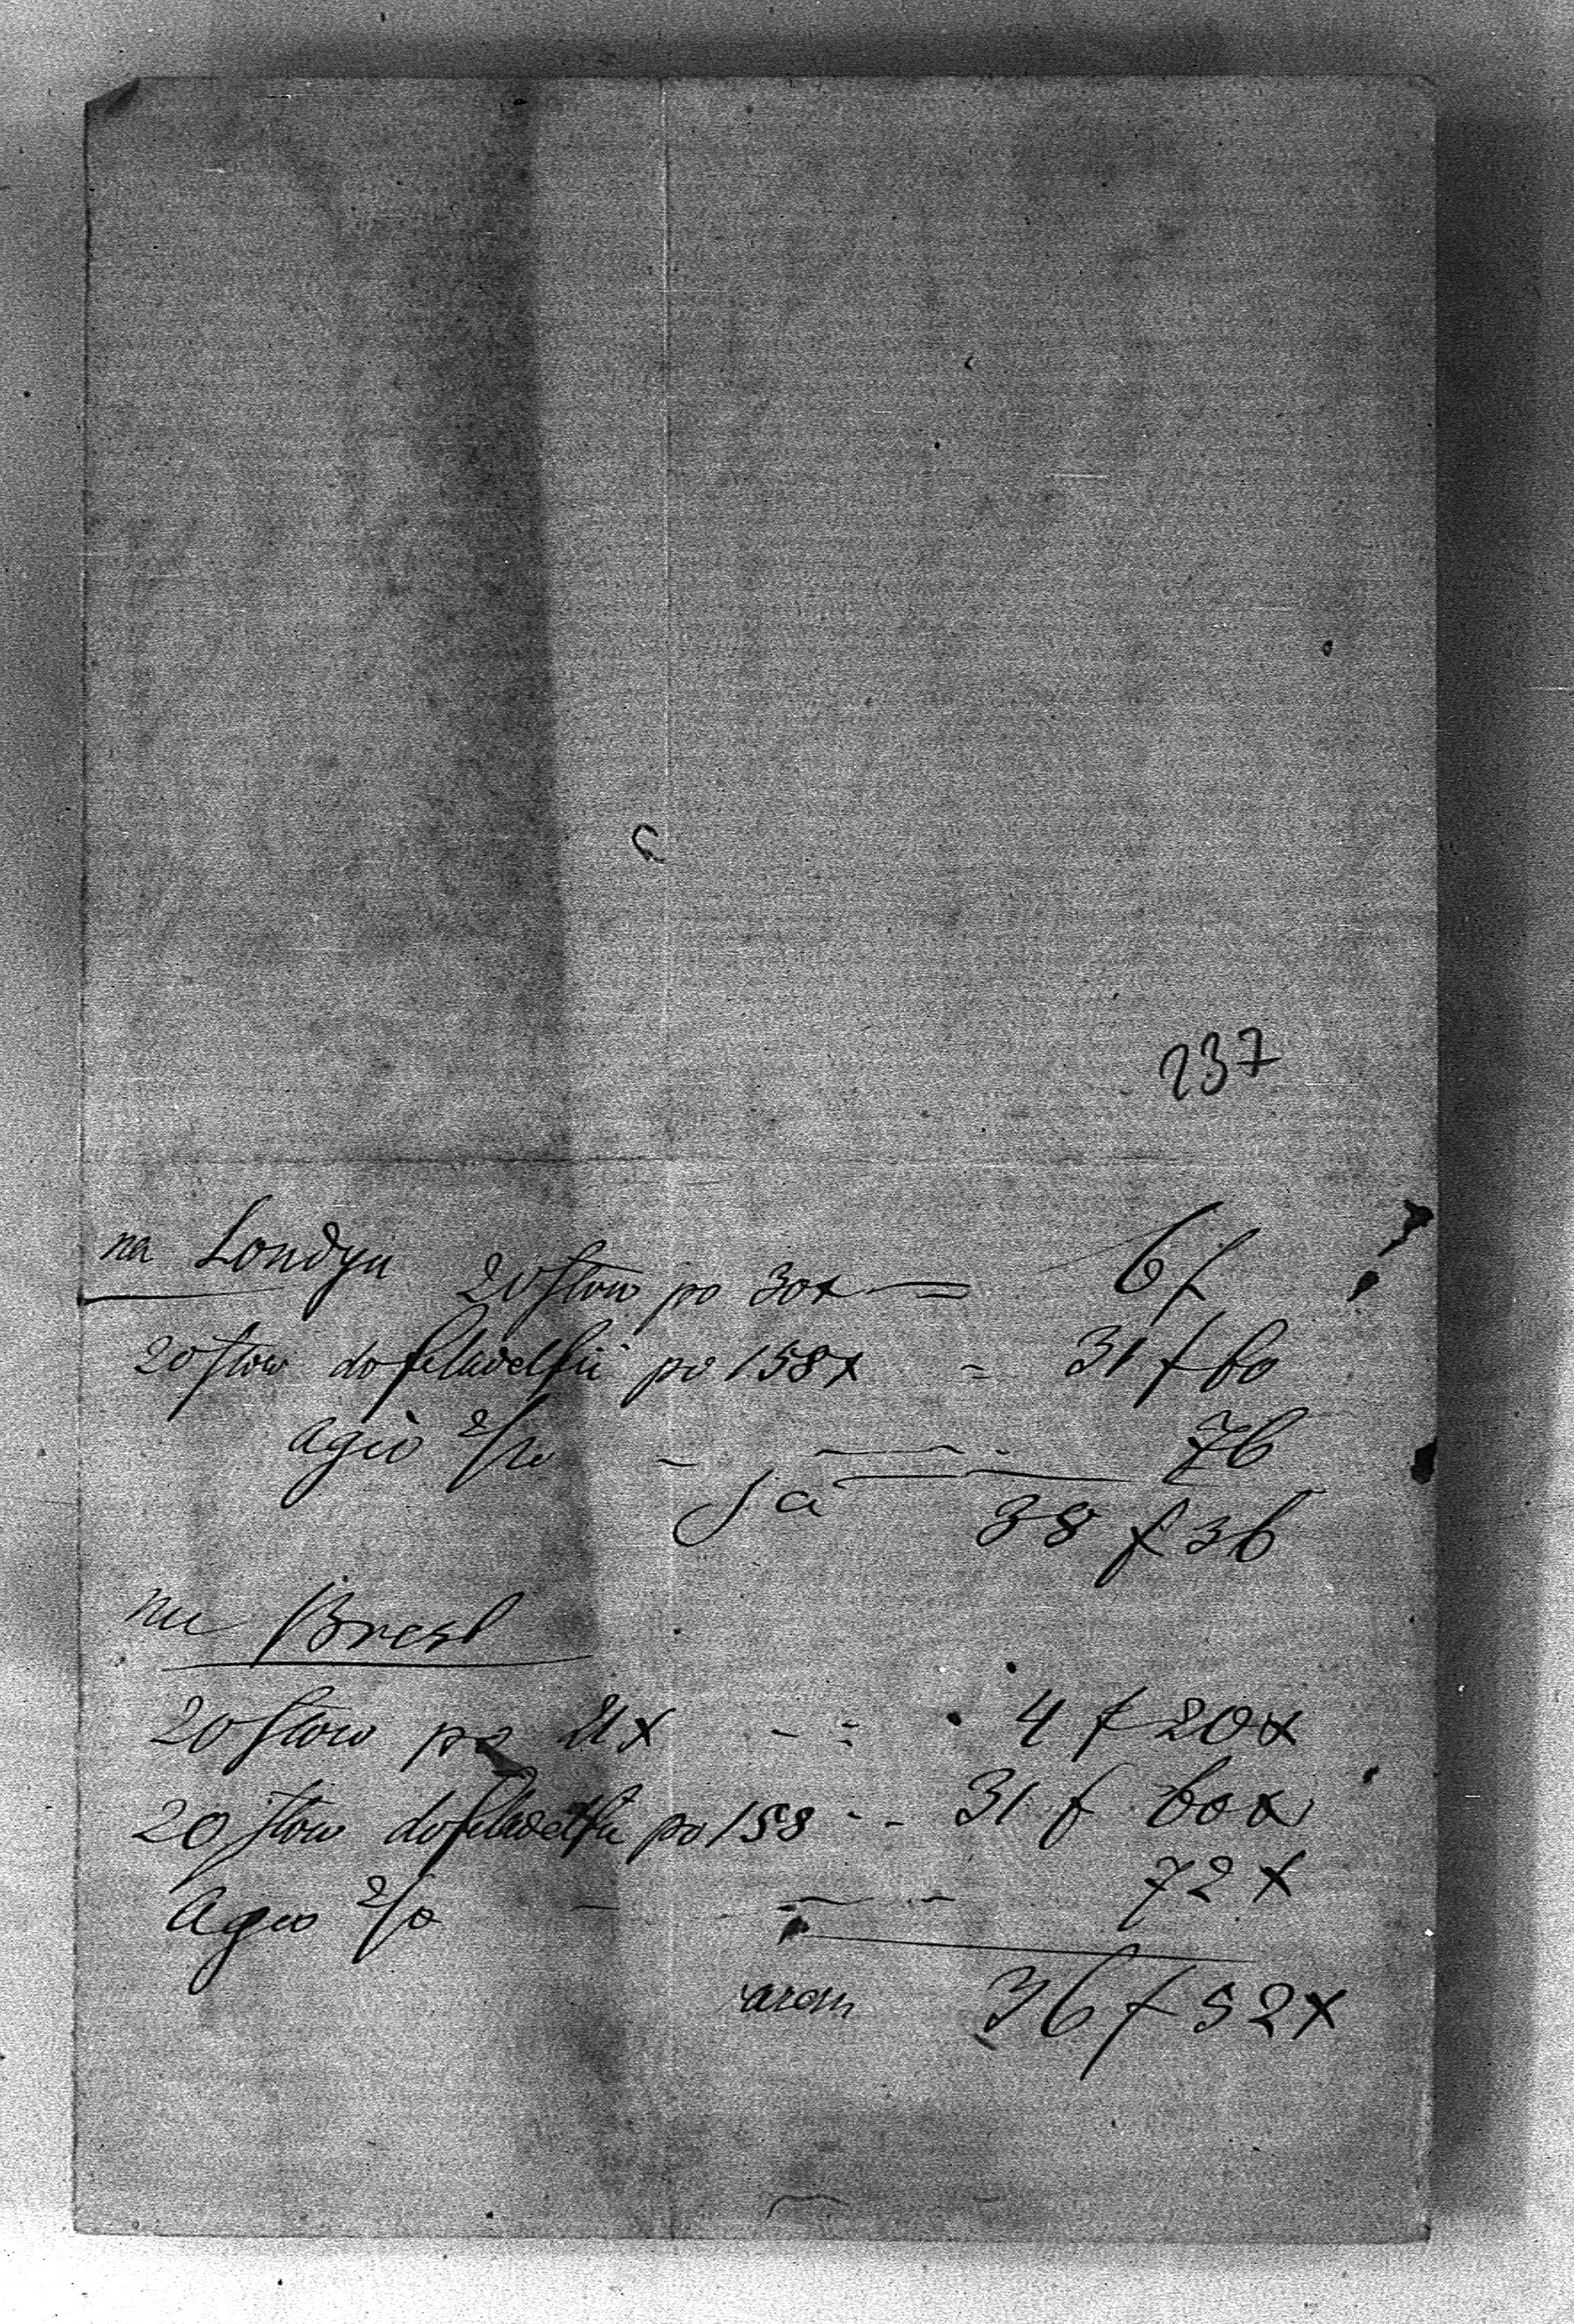 237
na Londyn 20 słow po 30x = 6 f
20 słow do filadelfii po 158x = 31 f 60
agio 2/% - 76
38 f 36
na Brest
20 słow po 21x - = 4 f 20x
20 słow do filadelfii po 158 - - 31 f 60x
Agio 2/% - 72x
razem 36 f 52x